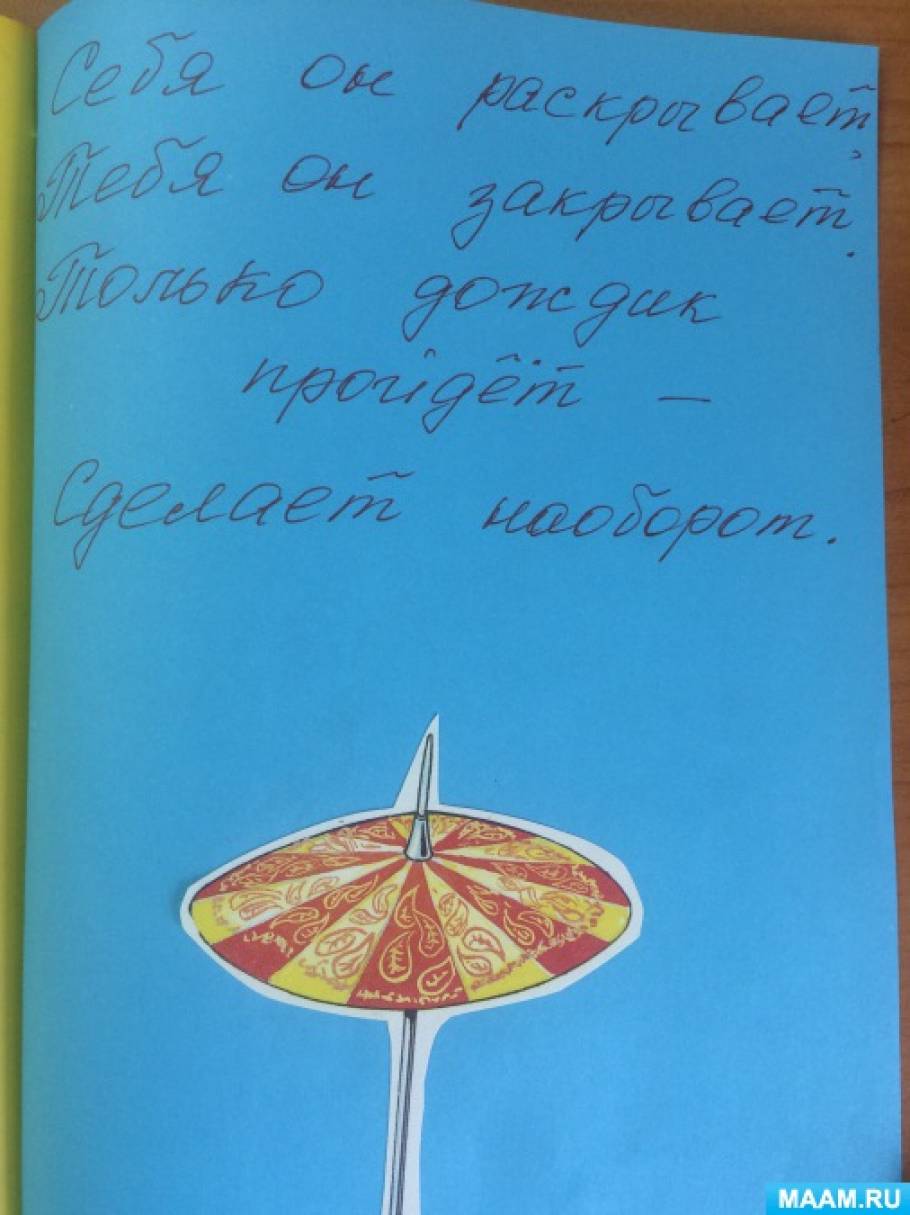 Себя он раскрывает,
Тебя он закрывает.
Только дождик
пройдёт —
Сделает наоборот.
MAAM.RU